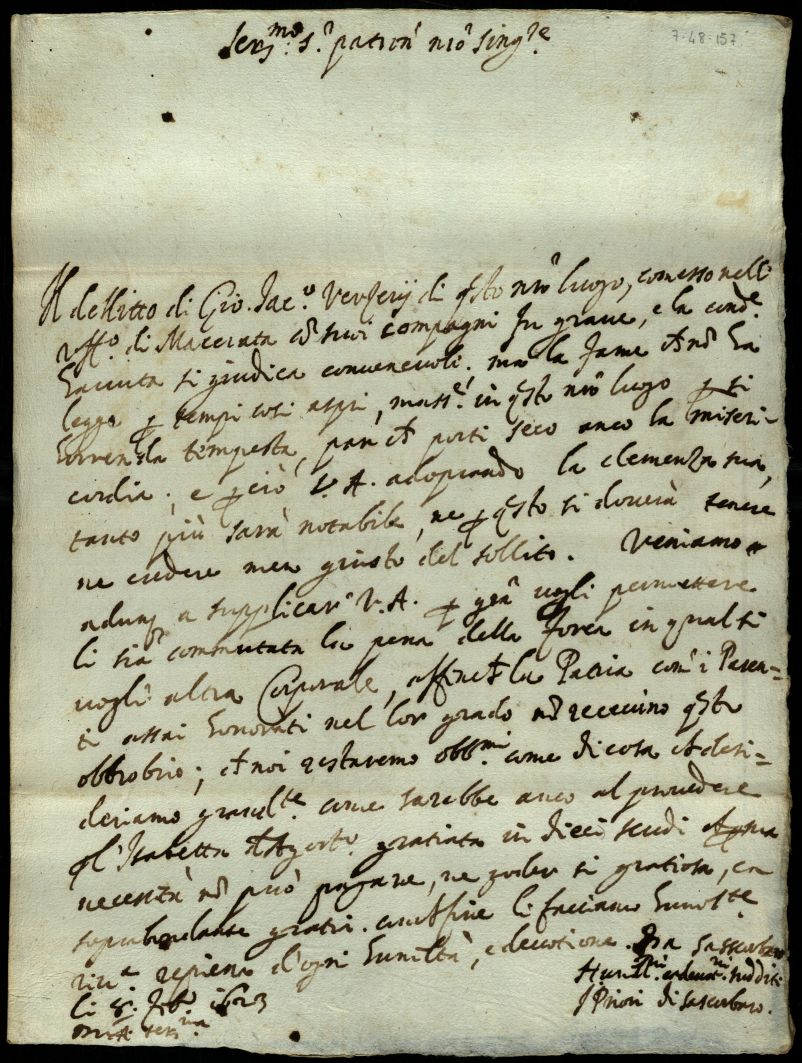 Ser.mo S.r patron nro sing.re
7-48-157
Il dellitto di Gio. Iac.o Verzerij di qsto nro luogo, comesso nell
uff.o di Macerata cõ suoi compagni fu graue, e la cond.e
hauuta si giudica conueneuoli. ma la fame ch nõ ha
legge p tempi così aspri, mass.e in qsto nro luogo p si
horrenda tempesta, par ch porti seco anco la miseri-
cordia; e pciò V.A. adoprando la clemenza sua,
tanto più sarà notabile, ne p qsto si douerà tenere
ne credere men giusto del sollito. Veniamo
adunq a supplicar V.A. p grã uogli permettere
li sia commutata la pena della forca in qual si
uogli altra Corporale, affinch la Patria con i Paren=
ti assai honorati nel lor grado nõ receuino qsto
obbrobrio; ch noi restaremo obb.mi come di cosa ch desi=
deriamo grand.te come sarebbe anco al prouedere
ql Isabetta gratiata in dieci scudi
necessità nõ può pagare, ne goder si gratiosa, en
soprabondante gratia. con ch fine li facciamo humil.te
riu.a repiena d'ogni humiltà, e deuotione. Da Sascorbaro
li 8. 7bre 1623
Humil.mi e deuot.mi sudditi
I Priori di Sascorbaro.